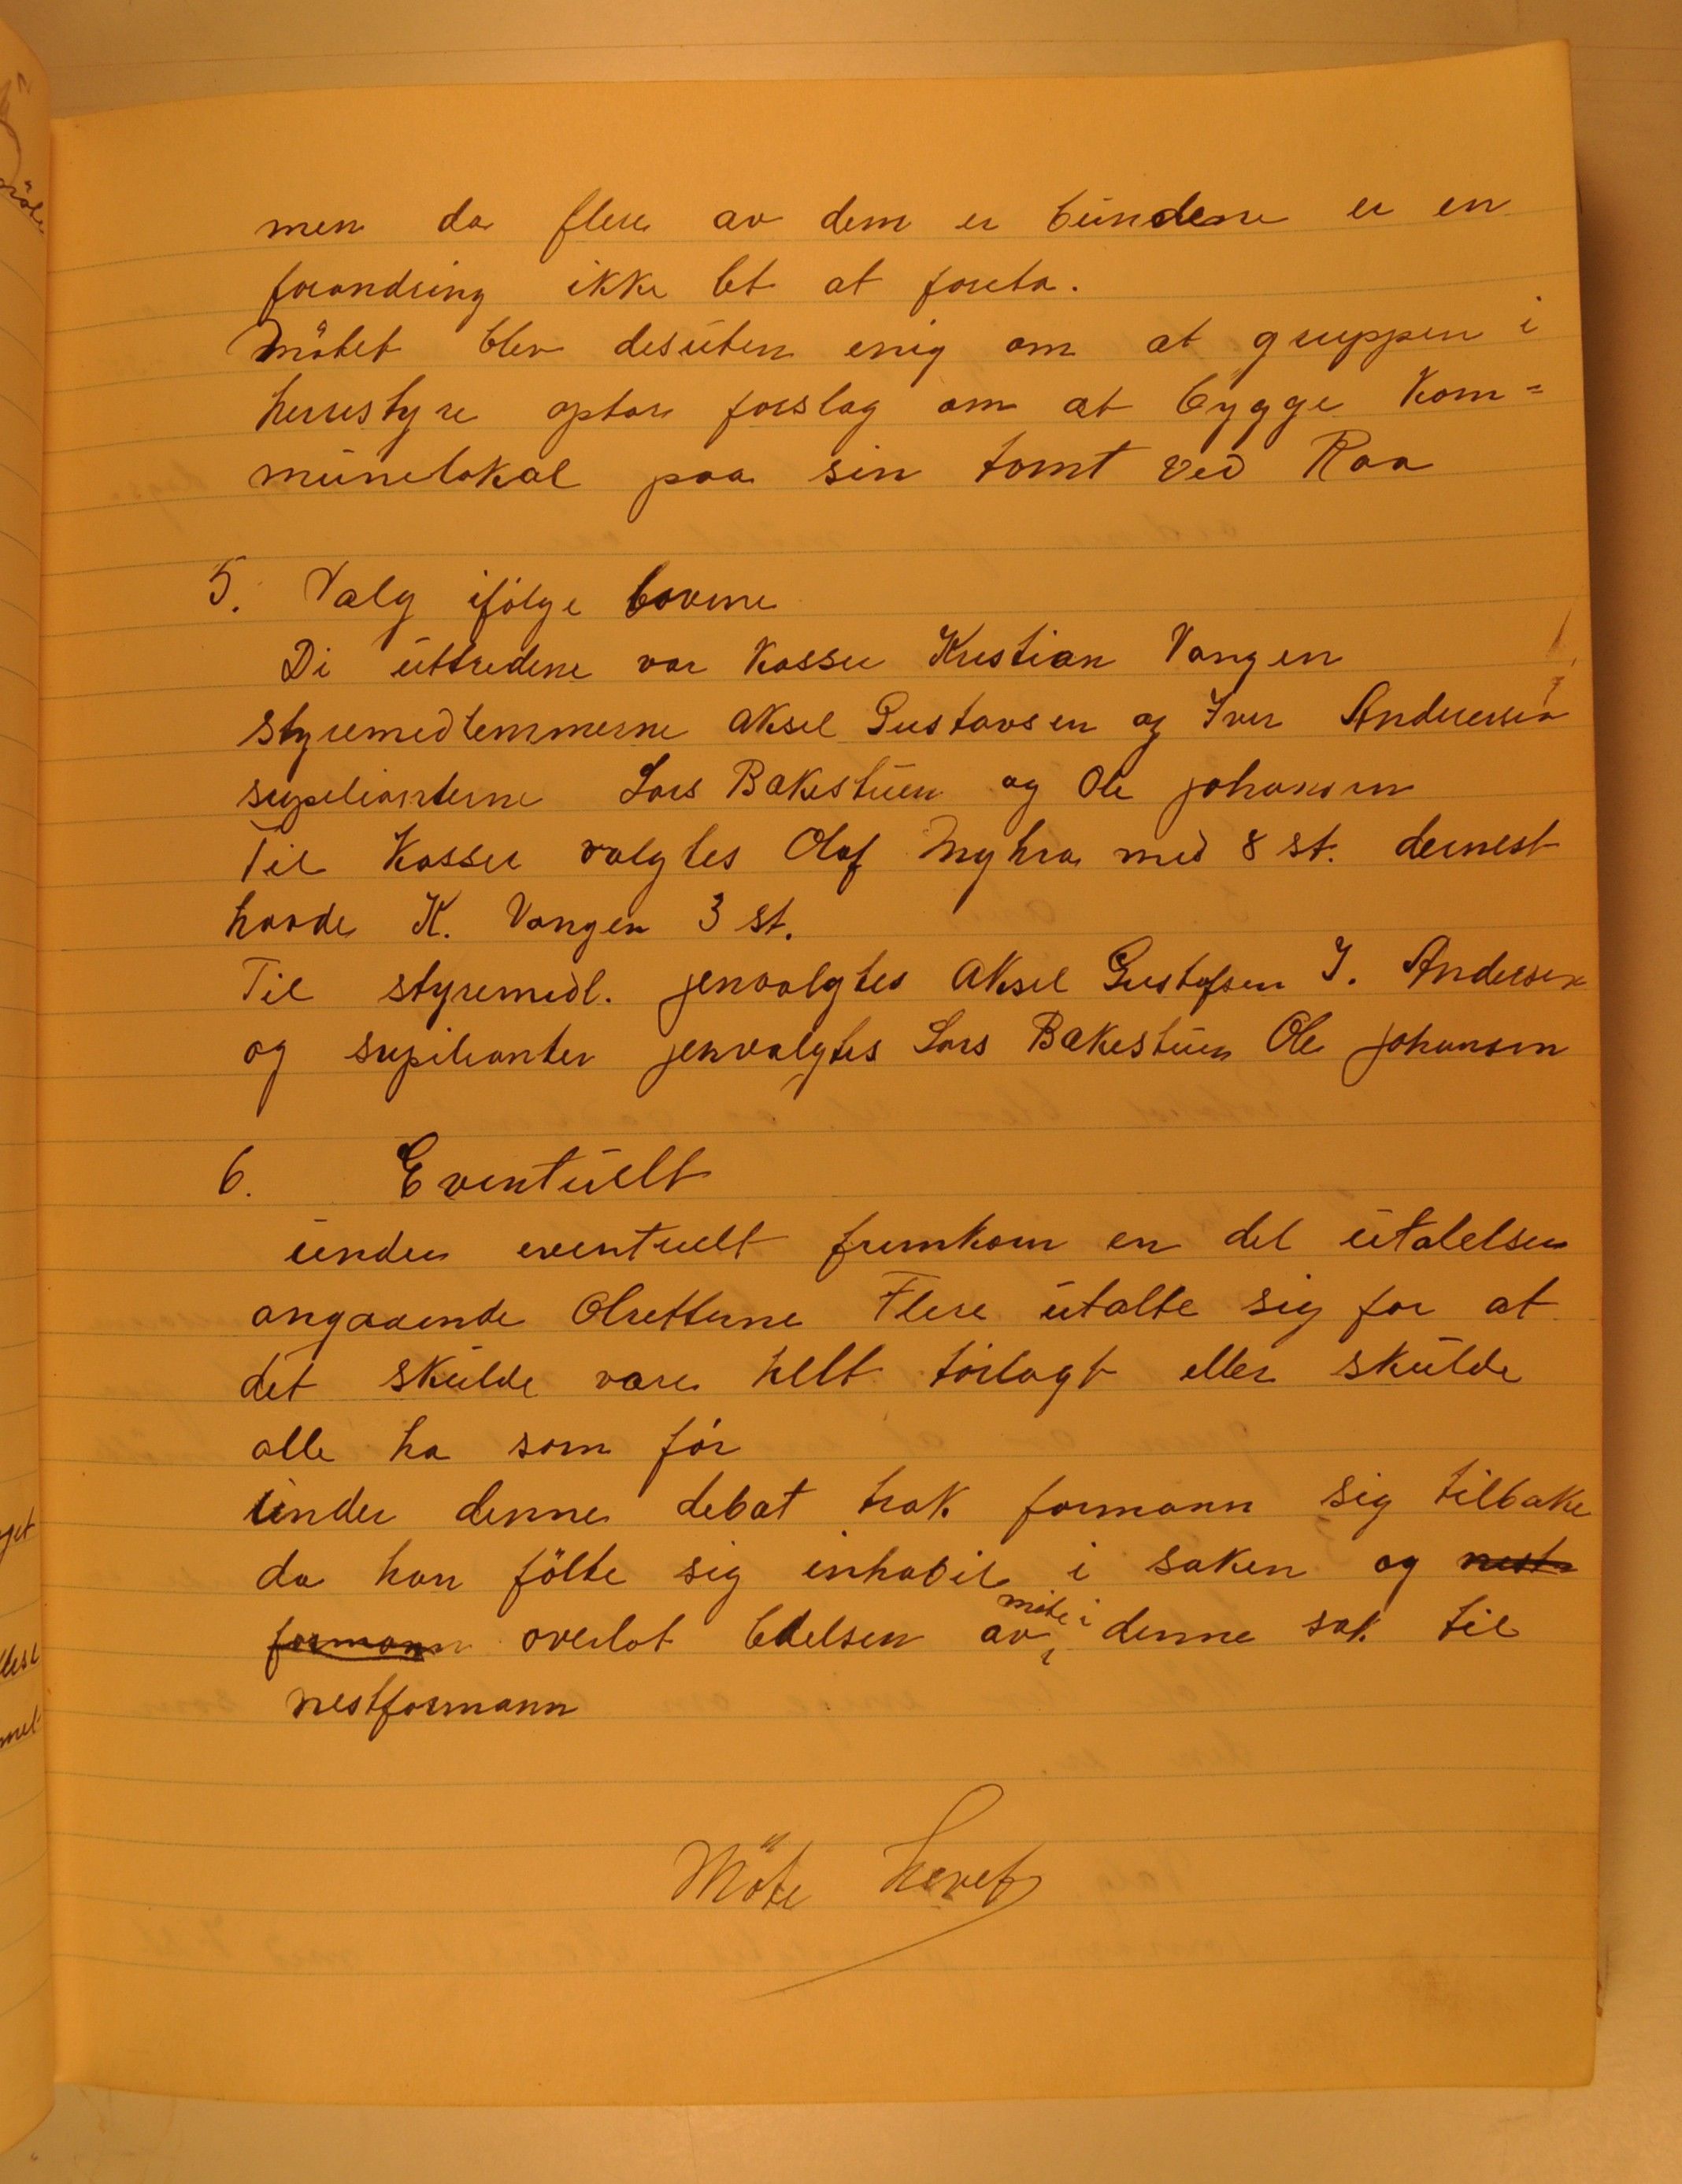 men da flere av dem er bundene er en
forandring ikke let at foreta.
Mötet blev desuten enig om at gruppen i
herrestyre optar forslag om at bygge Kom=
munelokal paa sin tomt ved Raa
5. Valg ifölge lovene
Di uttredene var Kasser Kristian Vangen
styremedlemmerne Aksel Gustavsen og Iver Andersen
supelianterne Lars Bakestuen og Ole Johansen
Til Kasser valgtes Olaf Nyhra med 8 st. dernest
havde K. Vangen 3 st.
Til styremedl. jenvalgtes Aksel Gustafsen I. Andersen
og supilianter jenvalgtes Lars Bakestuen Ole Johansen
6. Eventuelt
under eventuelt fremkom en del utalelser
angaaende Olretterne Flere utalte sig for at
det skulde være helt torlagt eller skulde
alle ha som för
under denne debat trak formann sig tilbake
da han fölte sig inhabil i saken og nest
formann overlot ledelsen av möte i denne sak til
nestformann
Möte hevet